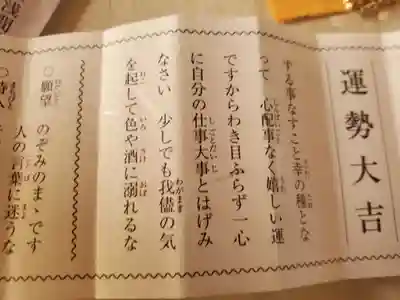 運勢大吉
する事なすこと幸の種とな
って 心配事なく嬉しい運
ですからわき目ふらず一心
に自分の仕事大事とはげみ
なさい 少しでも我儘の気
を起して色や酒に溺れるな
○願望 のぞみのまゝです
人の言葉に迷うな